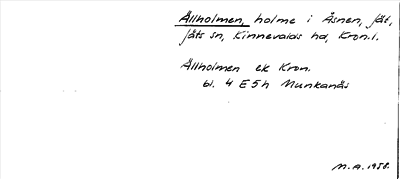 Ållholmen, holme i Åsnen, Jät,
Jäts sn, Kinnevalds hd, Kron.l.
Ållholmen ek Kron.
bl. 4 E5h Munkanäs
M.A. 1958.